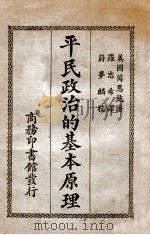 美國芮恩施著
羅志希譯
蔣夢麟校
平民政治的基本原理
商務印書館發行